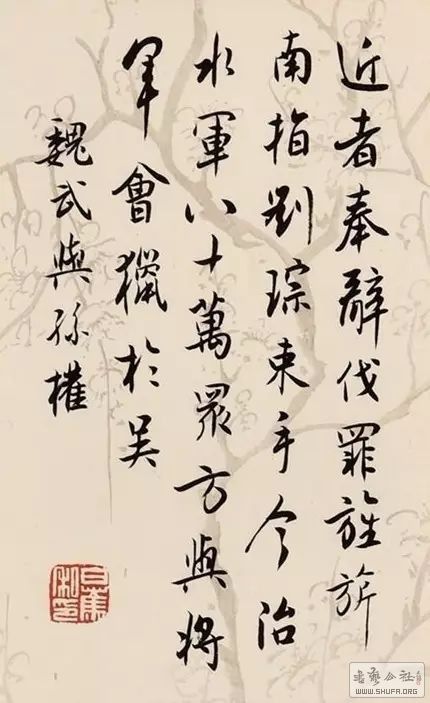 近者奉辭伐罪旌旂
南指劉琮束手今治
水軍八十萬眾方與將
軍會獵於吴
魏武與孫權
白蕉私印
书艺公社
WWW.SHUFA.ORG